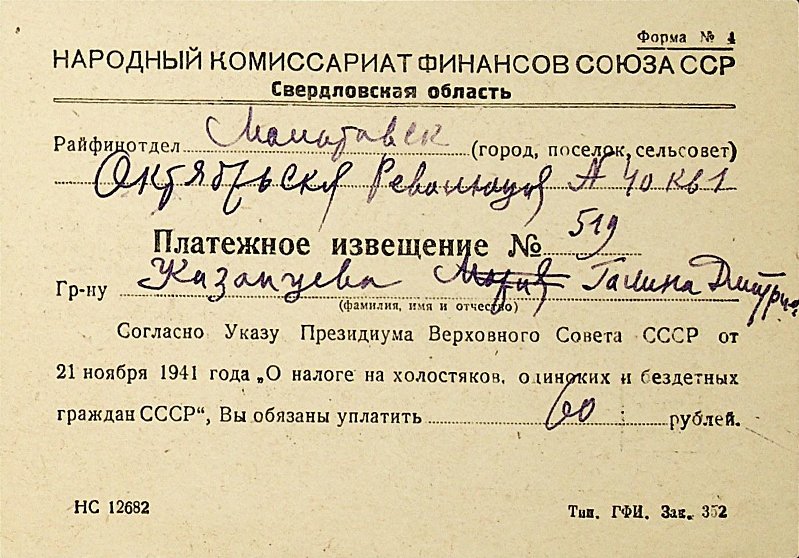 Форма № 4
НАРОДНЫЙ КОМИССАРИАТ ФИНАНСОВ СОЮЗА ССР
Свердловская область
Райфинотдел (город, поселок, сельсовет)
Октябрьской Революции 40 кв 1
Платежное извещение № 519
Гр-ну Казанцева Мария Галина Дмитрие
(фамилия, имя и отчество)
Согласно Указу Президиума Верховного Совета СССР от
21 ноября 1941 года „О налоге на холостяков, одиноких и бездетных
граждан СССР“, Вы обязаны уплатить 60 рублей.
НС 12682 Тип. ГФИ. Зак. 352